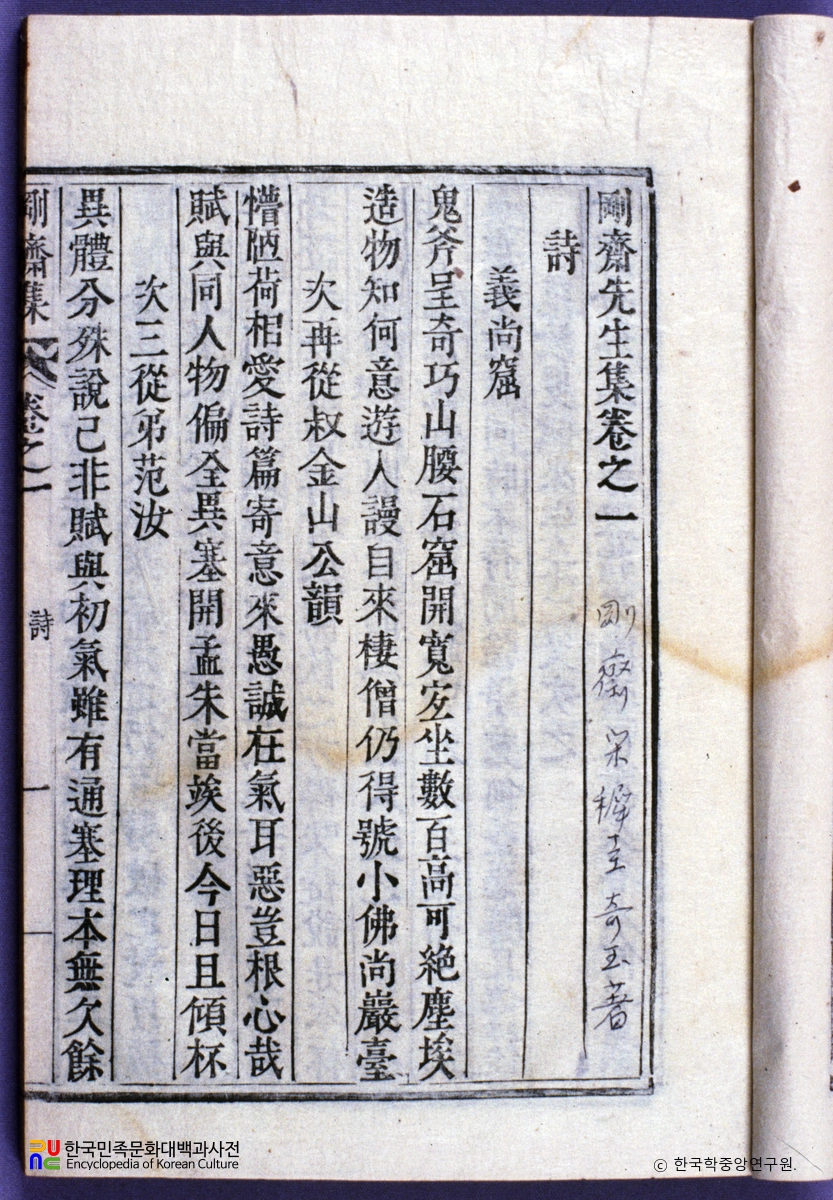 剛齋先生集卷之一 剛齋 宋穉圭奇玉著
詩
義尚窟
鬼斧呈奇巧山腰石窟開寬宐坐數百高可絶塵埃
造物知何意遊人謾自來棲僧仍得號小佛尚巖臺
次再從叔金山公韻
懵陋荷相愛詩篇寄意來愚誠在氣耳惡豈根心哉
賦與同人物偏全異塞開孟朱當竢後今日且傾杯
次三從弟范汝
異體分殊說己非賦與初氣雖有通塞理本無欠餘
剛齋集 卷之一 詩 一
한국민족문화대백과사전
Encyclopedia of Korean Culture
ⓒ 한국학중앙연구원.